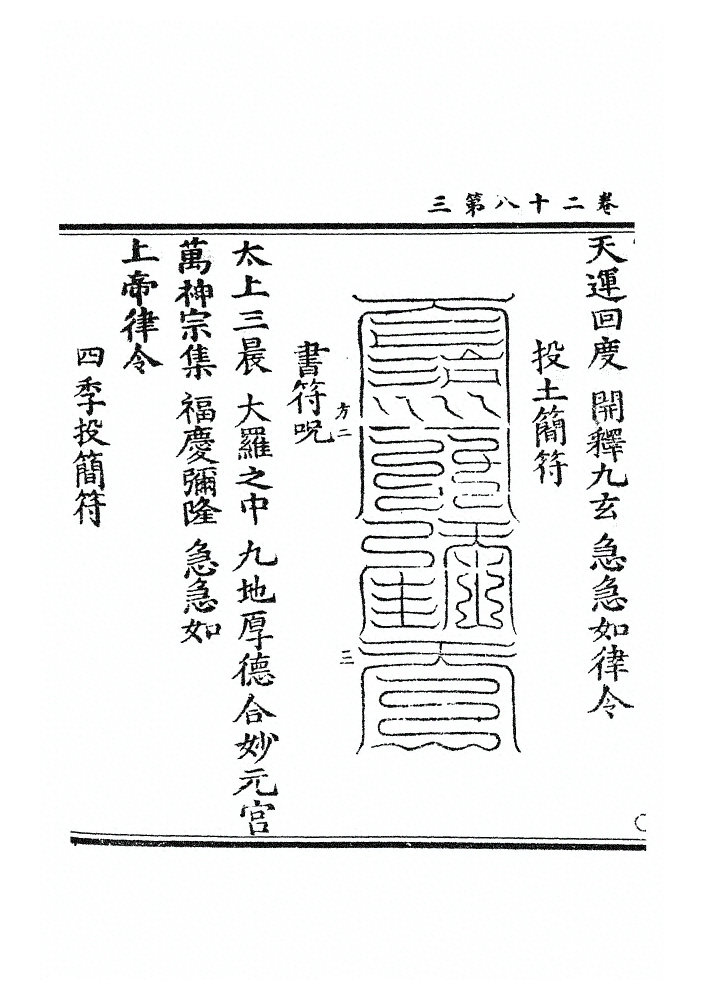 卷二十八第三
天運回度 開釋九玄 急急如律令
投土簡符
方二
三
書符呪
太上三晨 大羅之中 九地厚德 合妙元宮
萬神宗集 福慶彌隆 急急如
上帝律令
四季投簡符